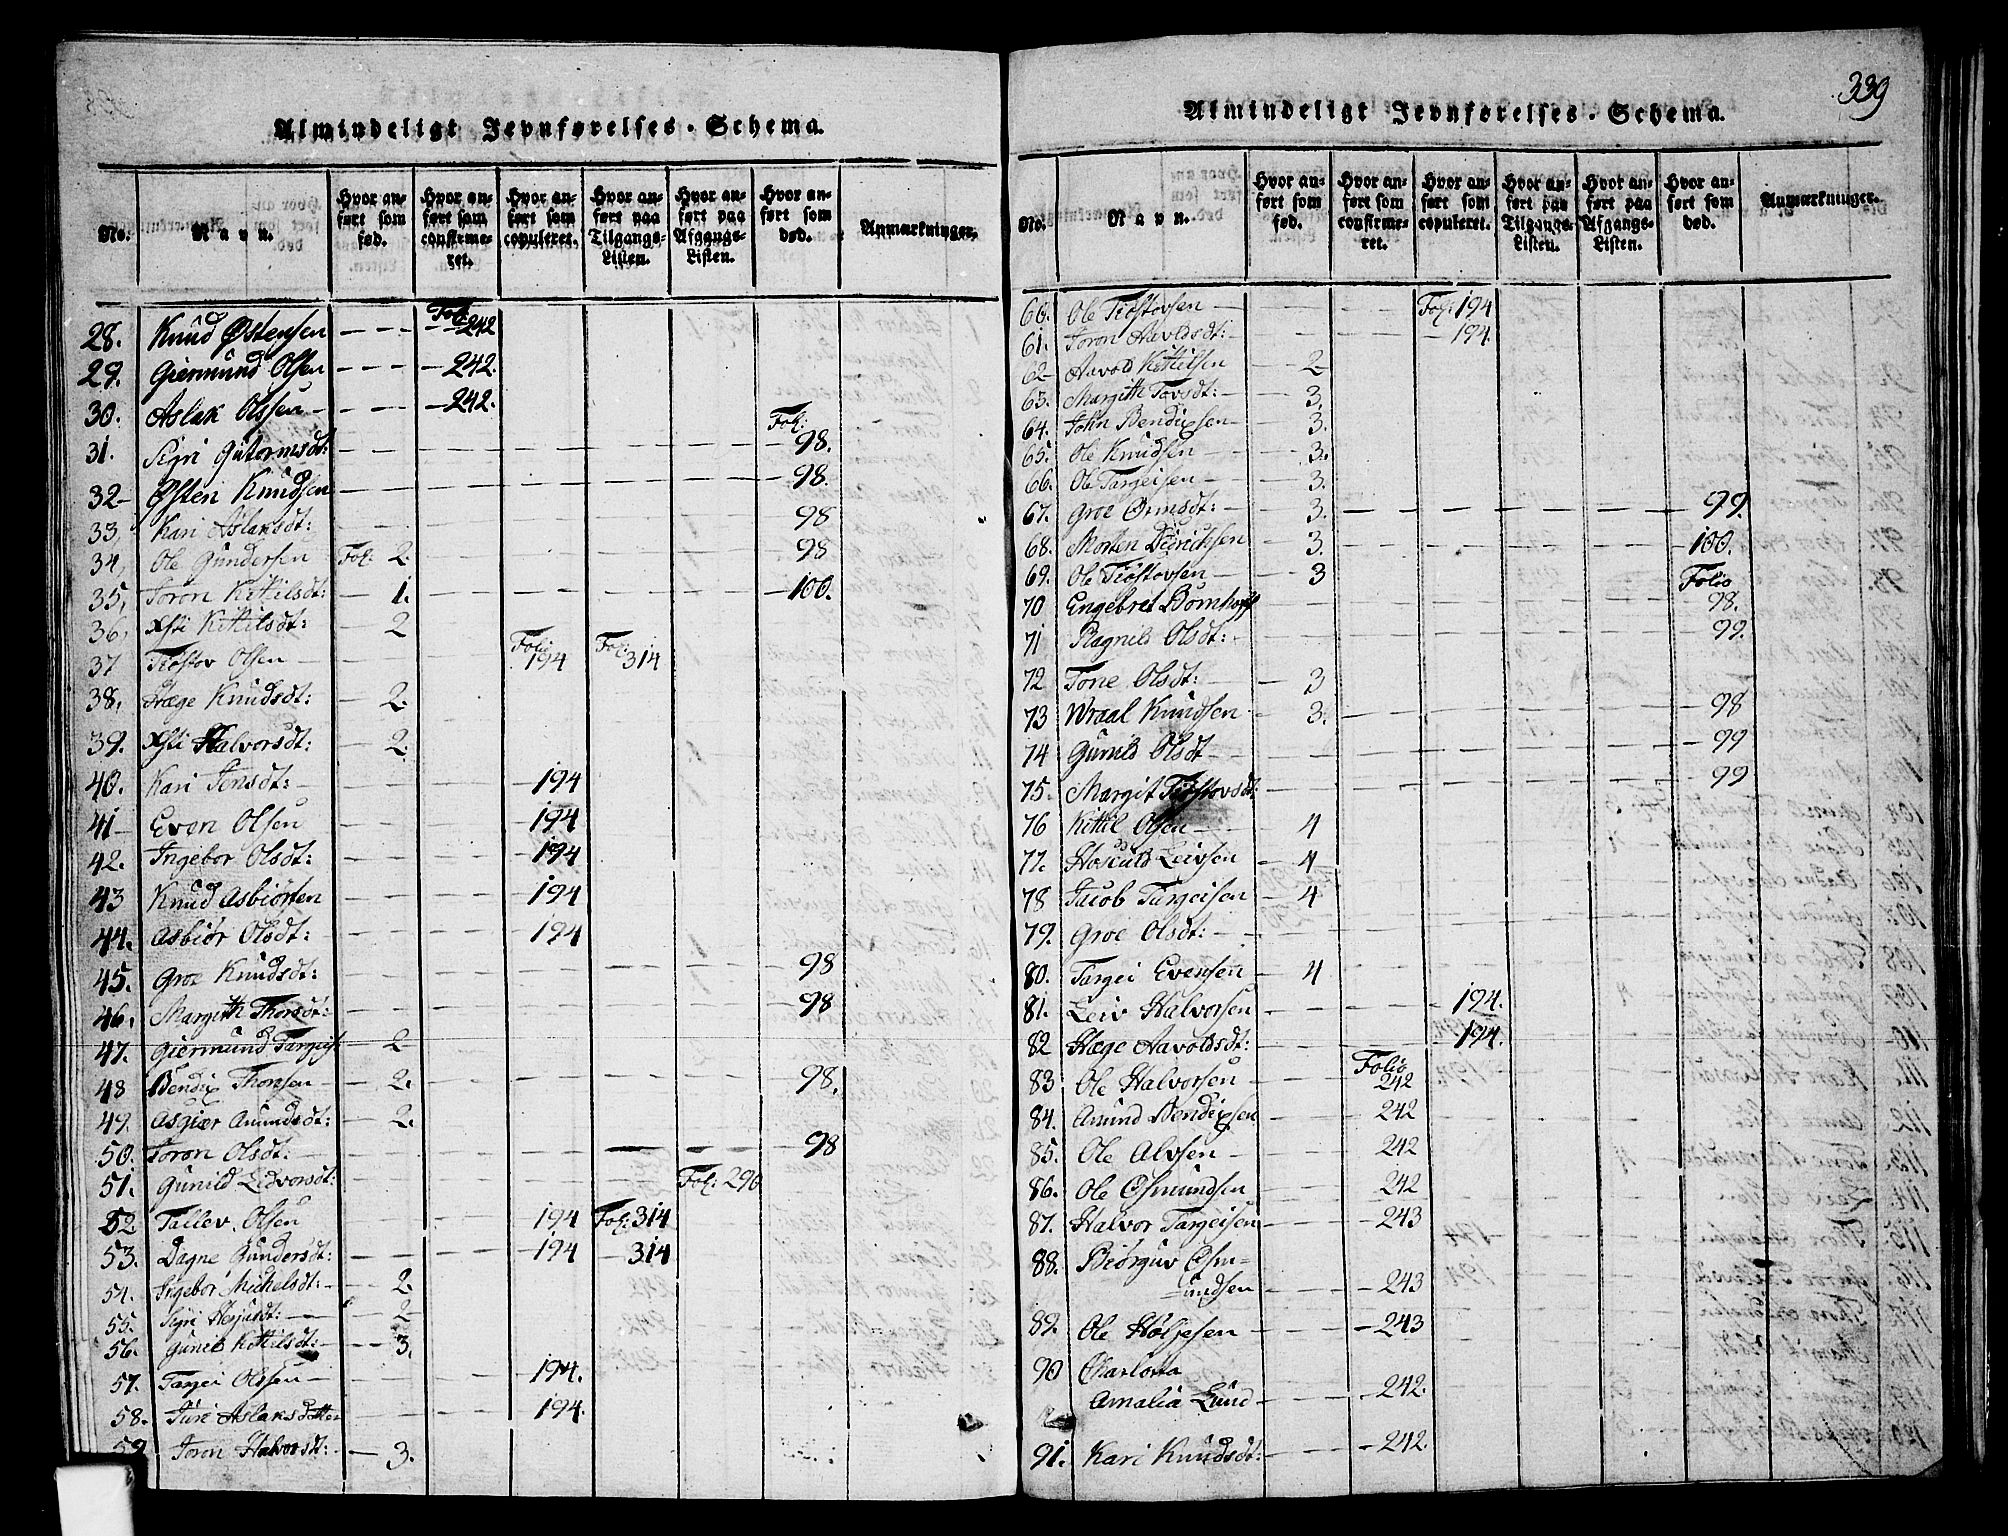 Almindeligt Jevnførelses-Schema.
No. Navn. Hvor anført som fød. Hvor anført som confirmeret. Hvor anført som copuleret. Hvor anført paa Tilgangs-Listen. Hvor anført paa Afgangs-Listen. Hvor anført som død. Anmærkninger.
28. Knud Østensen Fol: 242
29. Giermund Olsen 242.
30. Aslak Olsen 242.
31. Sigri Gutormsdt: Fol: 98.
32 Østen Knudsen 98.
33 Kari Aslaksdt: 98
34, Ole Gundersen Fol: 2. 98
35, Toron Kittilsdt: 1. 100.
36, Kittilsdt: 2
37 Tiøstov Olsen Folio 194 Fol: 314
38, Hæge Knudsdt: 2.
39. Halvorsdt: 2.
40. Kari Jensdt: 194
41 Even Olsen 194
42. Ingebor Olsdt: 194
43 Knud Asbiörsen 194
44. Asbiör Olsdt: 194
45. Groe Knudsdt: 98
46, Margith Thorsdt: 98
47. Giermund Targeis 2
48 Bendix Thorsen 2. 98.
49. Asgier Anundsdt: 2.
50. Toron Olsdt: 98
51. Gunild Ledvorsdt: Fol: 290
52 Tallev Olsen 194 Fol: 314
53. Dagne Gundersdt: 194 314
54. Ingebor Michelsdt: 2.
55. Sigri Herjusdt: 2
56. Gunild Kittilsdt: 3.
57. Targei Olsen 194.
58. Turi Aslaksdatter 194.
59 Toron Halvorsdt: 3.
339
Almindeligt Jevnførelses-Schema.
No. Navn. Hvor anført som fød. Hvor anført som confirmeret. Hvor anført som copuleret. Hvor anført paa Tilgangs-Listen. Hvor anført paa Afgangs-Listen. Hvor anført som død. Anmærkninger.
60. Ole Tiøstovsen Fol: 194
61. Toron Aavoldsdt: 194.
62 Aavold Kittilsen 2
63. Margith Tovsdt: 3.
64. John Bendixsen 3.
65. Ole Knudsen 3.
66. Ole Targeisen 3.
67. Groe Ormsdt: 3. 99.
68. Morten Didrichsen 3. 100.
69. Ole Tiøstovsen 3
70 Engebret Bomhoff Folio 98.
71 Ragnild Olsdt: 99.
72 Tone Olsdt: 3
73 Wraal Knudsen 3. 98
74 Gunild Olsdt 99
75. Margit Tiøstovsdt: 99
76 Kittil Olsen 4
77. Hosculd Leivsen 4
78 Jacob Targeisen 4
79. Groe Olsdt:
80. Targei Evensen 4
81. Leiv Halvorsen 194.
82 Hæge Aavoldsdt: 194.
83 Ole Halvorsen Folio 242
84. Anund Bendixsen 242
85. Ole Alvsen 242
86. Ole Osmundsen 242
87. Halvor Targeisen 243
88. Biörguv Osm=
undsen 243
89. Ole Høljesen 243
90 Charlotta
Amalia Lund 242.
91. Kari Knudsdt: 242.